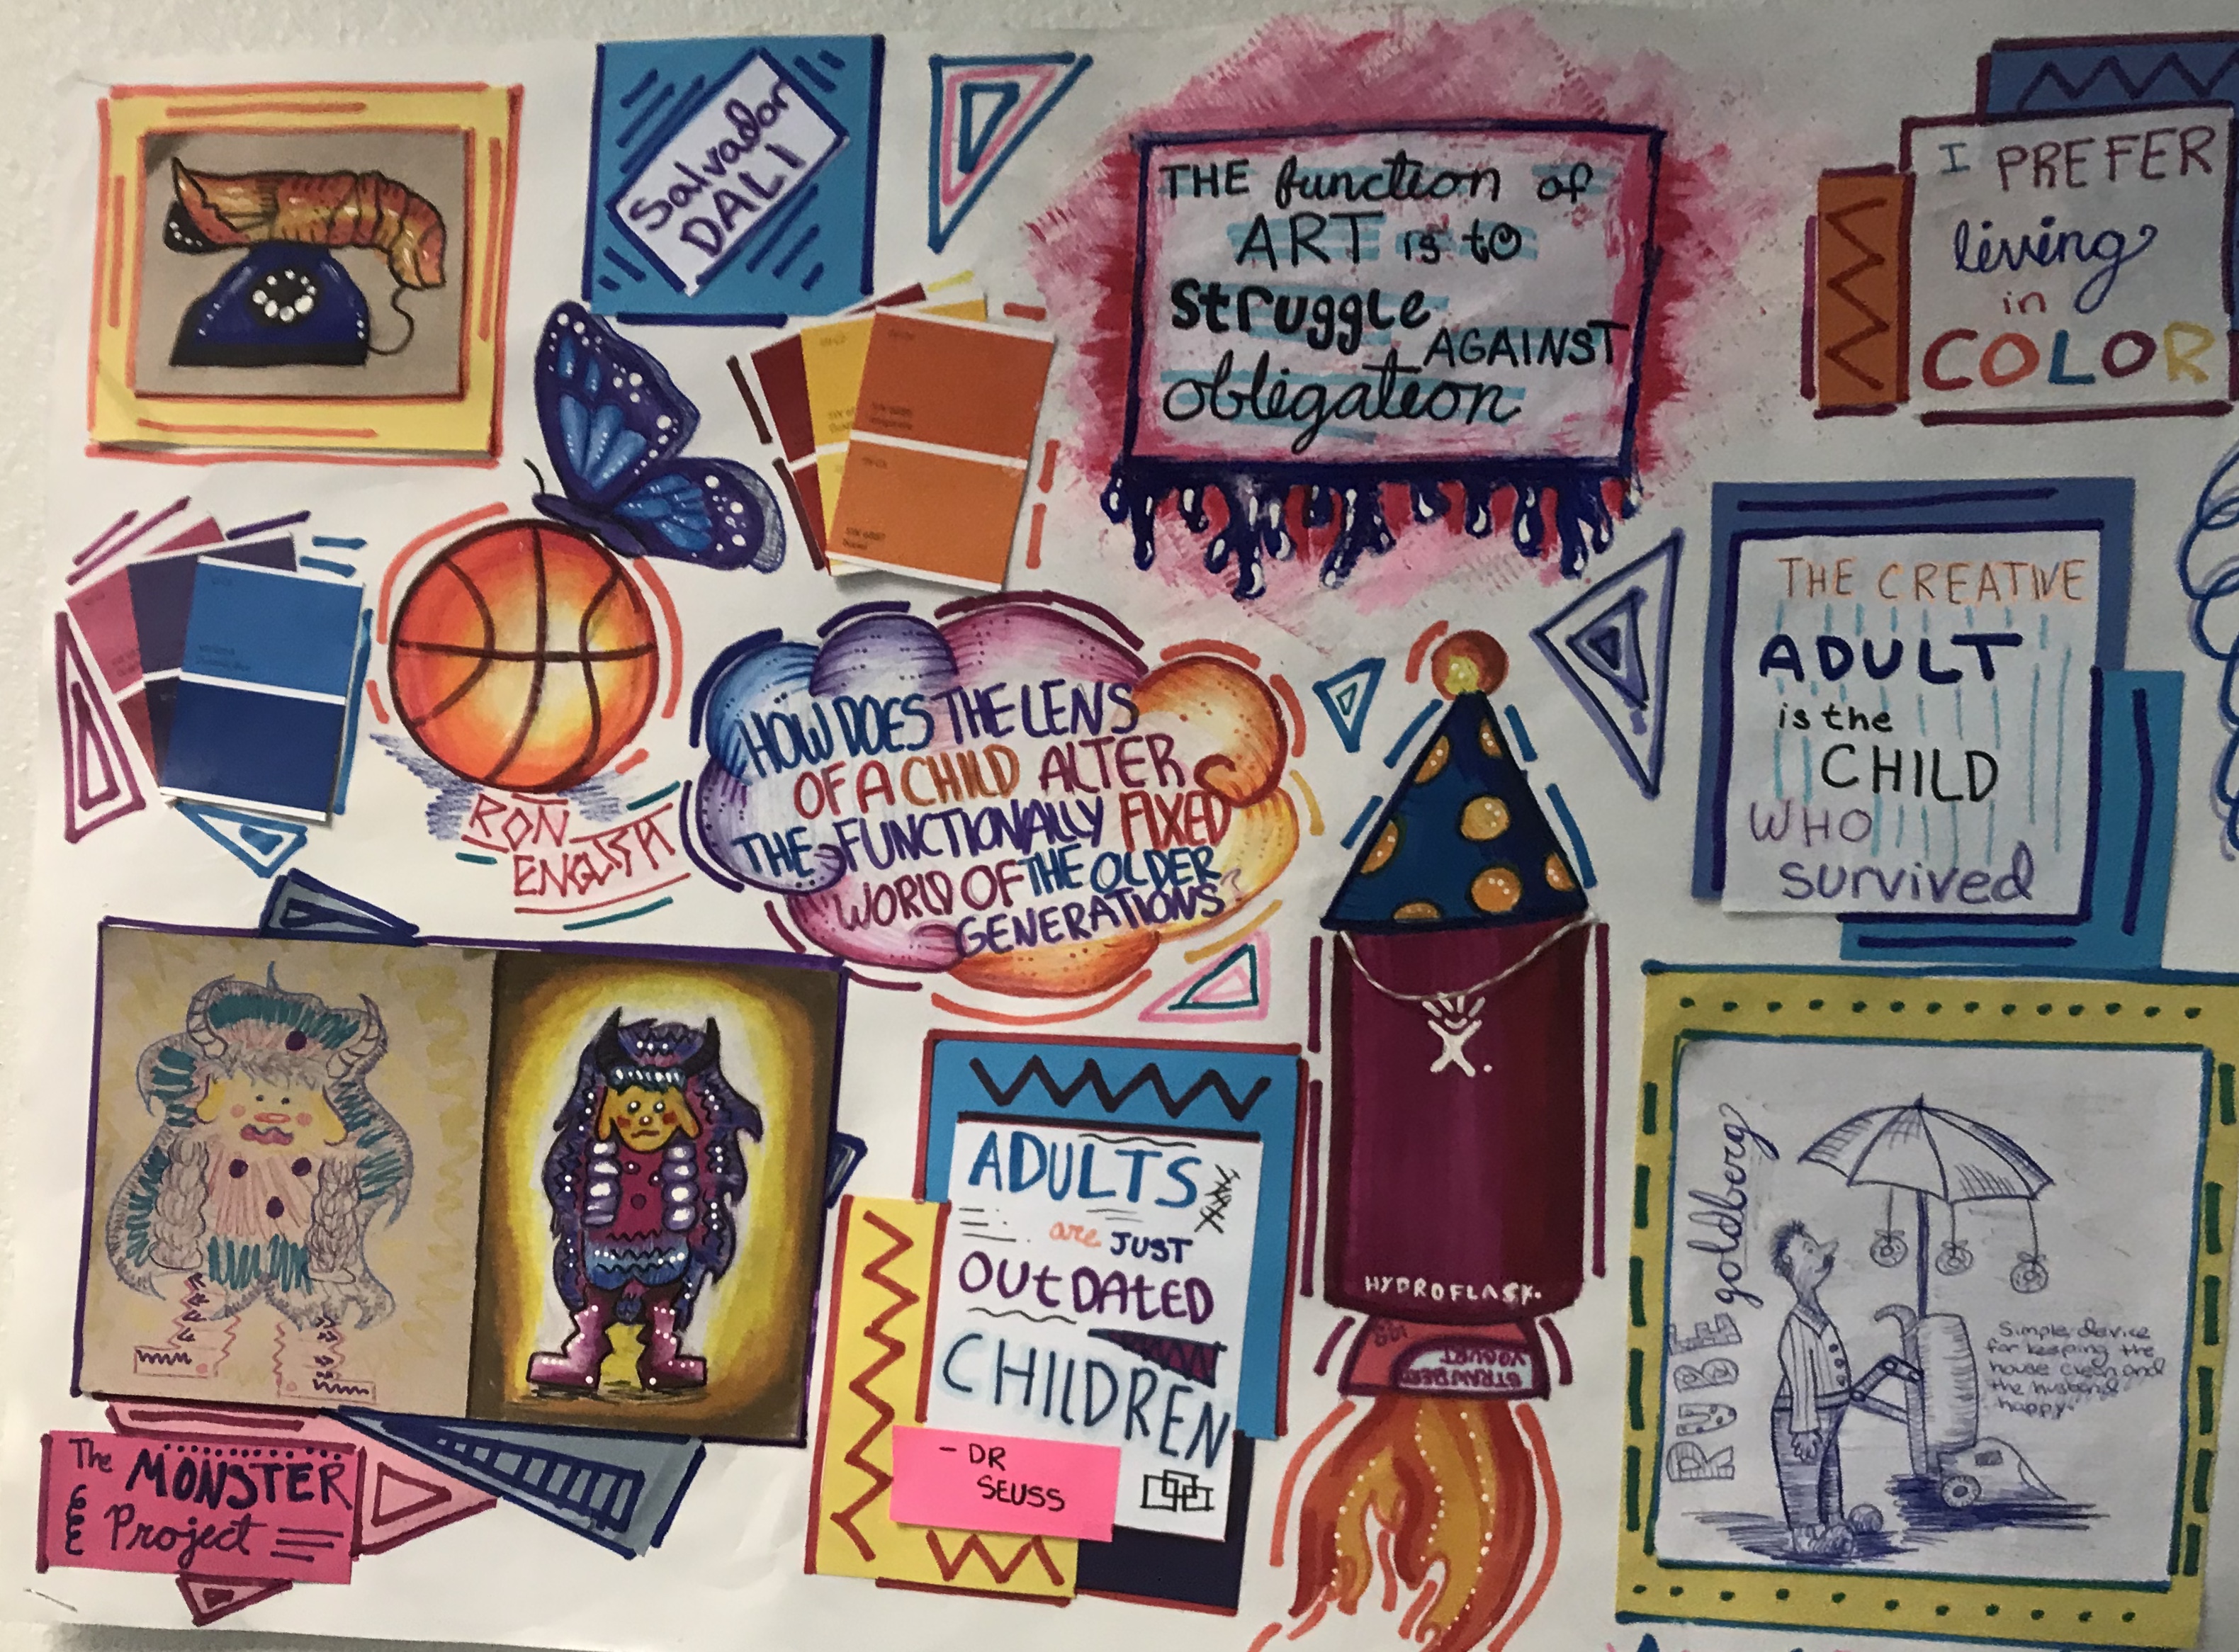 Salvador
DALI
THE function of
ART is to
struggle AGAINST
obligation
I PREFER
living
in
COLOR
RON
ENGLISH
HOW DOES THE LENS
OF A CHILD ALTER
THE FUNCTIONALLY FIXED
WORLD OF THE OLDER
GENERATIONS?
THE CREATIVE
ADULT
is the
CHILD
WHO
survived
HYDROFLASK.
STRAWBERRY
YOGURT
ADULTS
are JUST
OUtDAtED
CHILDREN
- DR
SEUSS
The MONSTER
& Project
RUBE goldberg
Simple device
for keeping the
house clean and
the husband
happy.